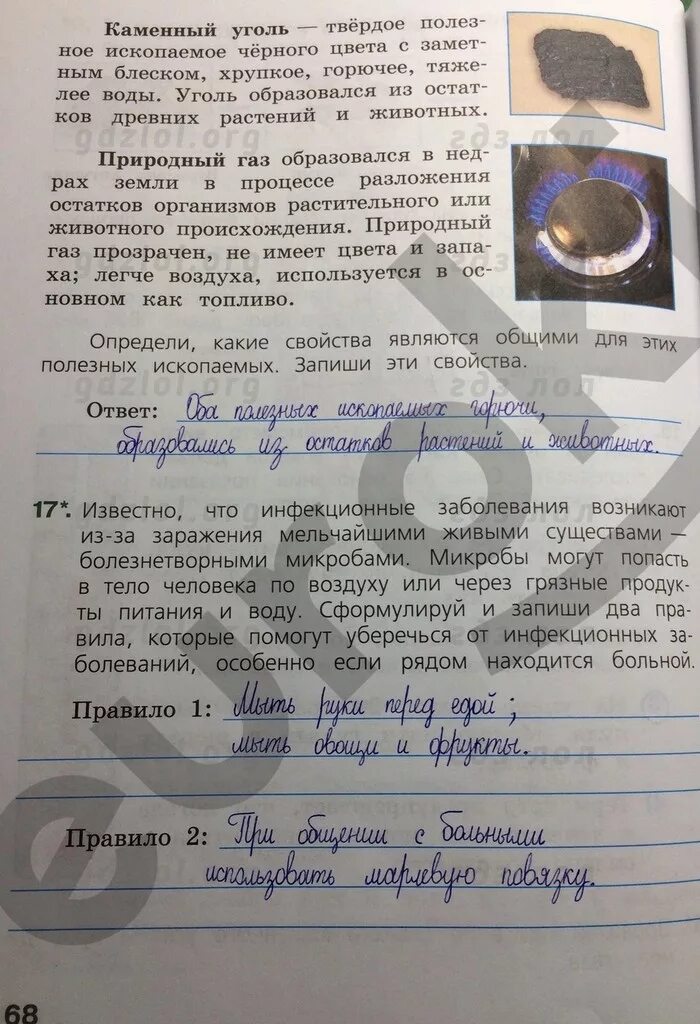 Каменный уголь — твёрдое полез-
ное ископаемое чёрного цвета с замет-
ным блеском, хрупкое, горючее, тяже-
лее воды. Уголь образовался из остат-
ков древних растений и животных.
gdzlol.org гдз лол
Природный газ образовался в нед-
рах земли в процессе разложения
остатков организмов растительного или
животного происхождения. Природный
газ прозрачен, не имеет цвета и запа-
ха; легче воздуха, используется в ос-
новном как топливо.
Определи, какие свойства являются общими для этих
полезных ископаемых. Запиши эти свойства.
gdzlol.org гдз лол
Ответ: Оба полезных ископаемых горючи,
образовались из остатков растений и животных.
17*. Известно, что инфекционные заболевания возникают
из-за заражения мельчайшими живыми существами —
болезнетворными микробами. Микробы могут попасть
в тело человека по воздуху или через грязные продук-
ты питания и воду. Сформулируй и запиши два пра-
вила, которые помогут уберечься от инфекционных за-
болеваний, особенно если рядом находится больной.
Правило 1: Мыть руки перед едой;
мыть овощи и фрукты.
Правило 2: При общении с больными
использовать марлевую повязку.
68
euroki